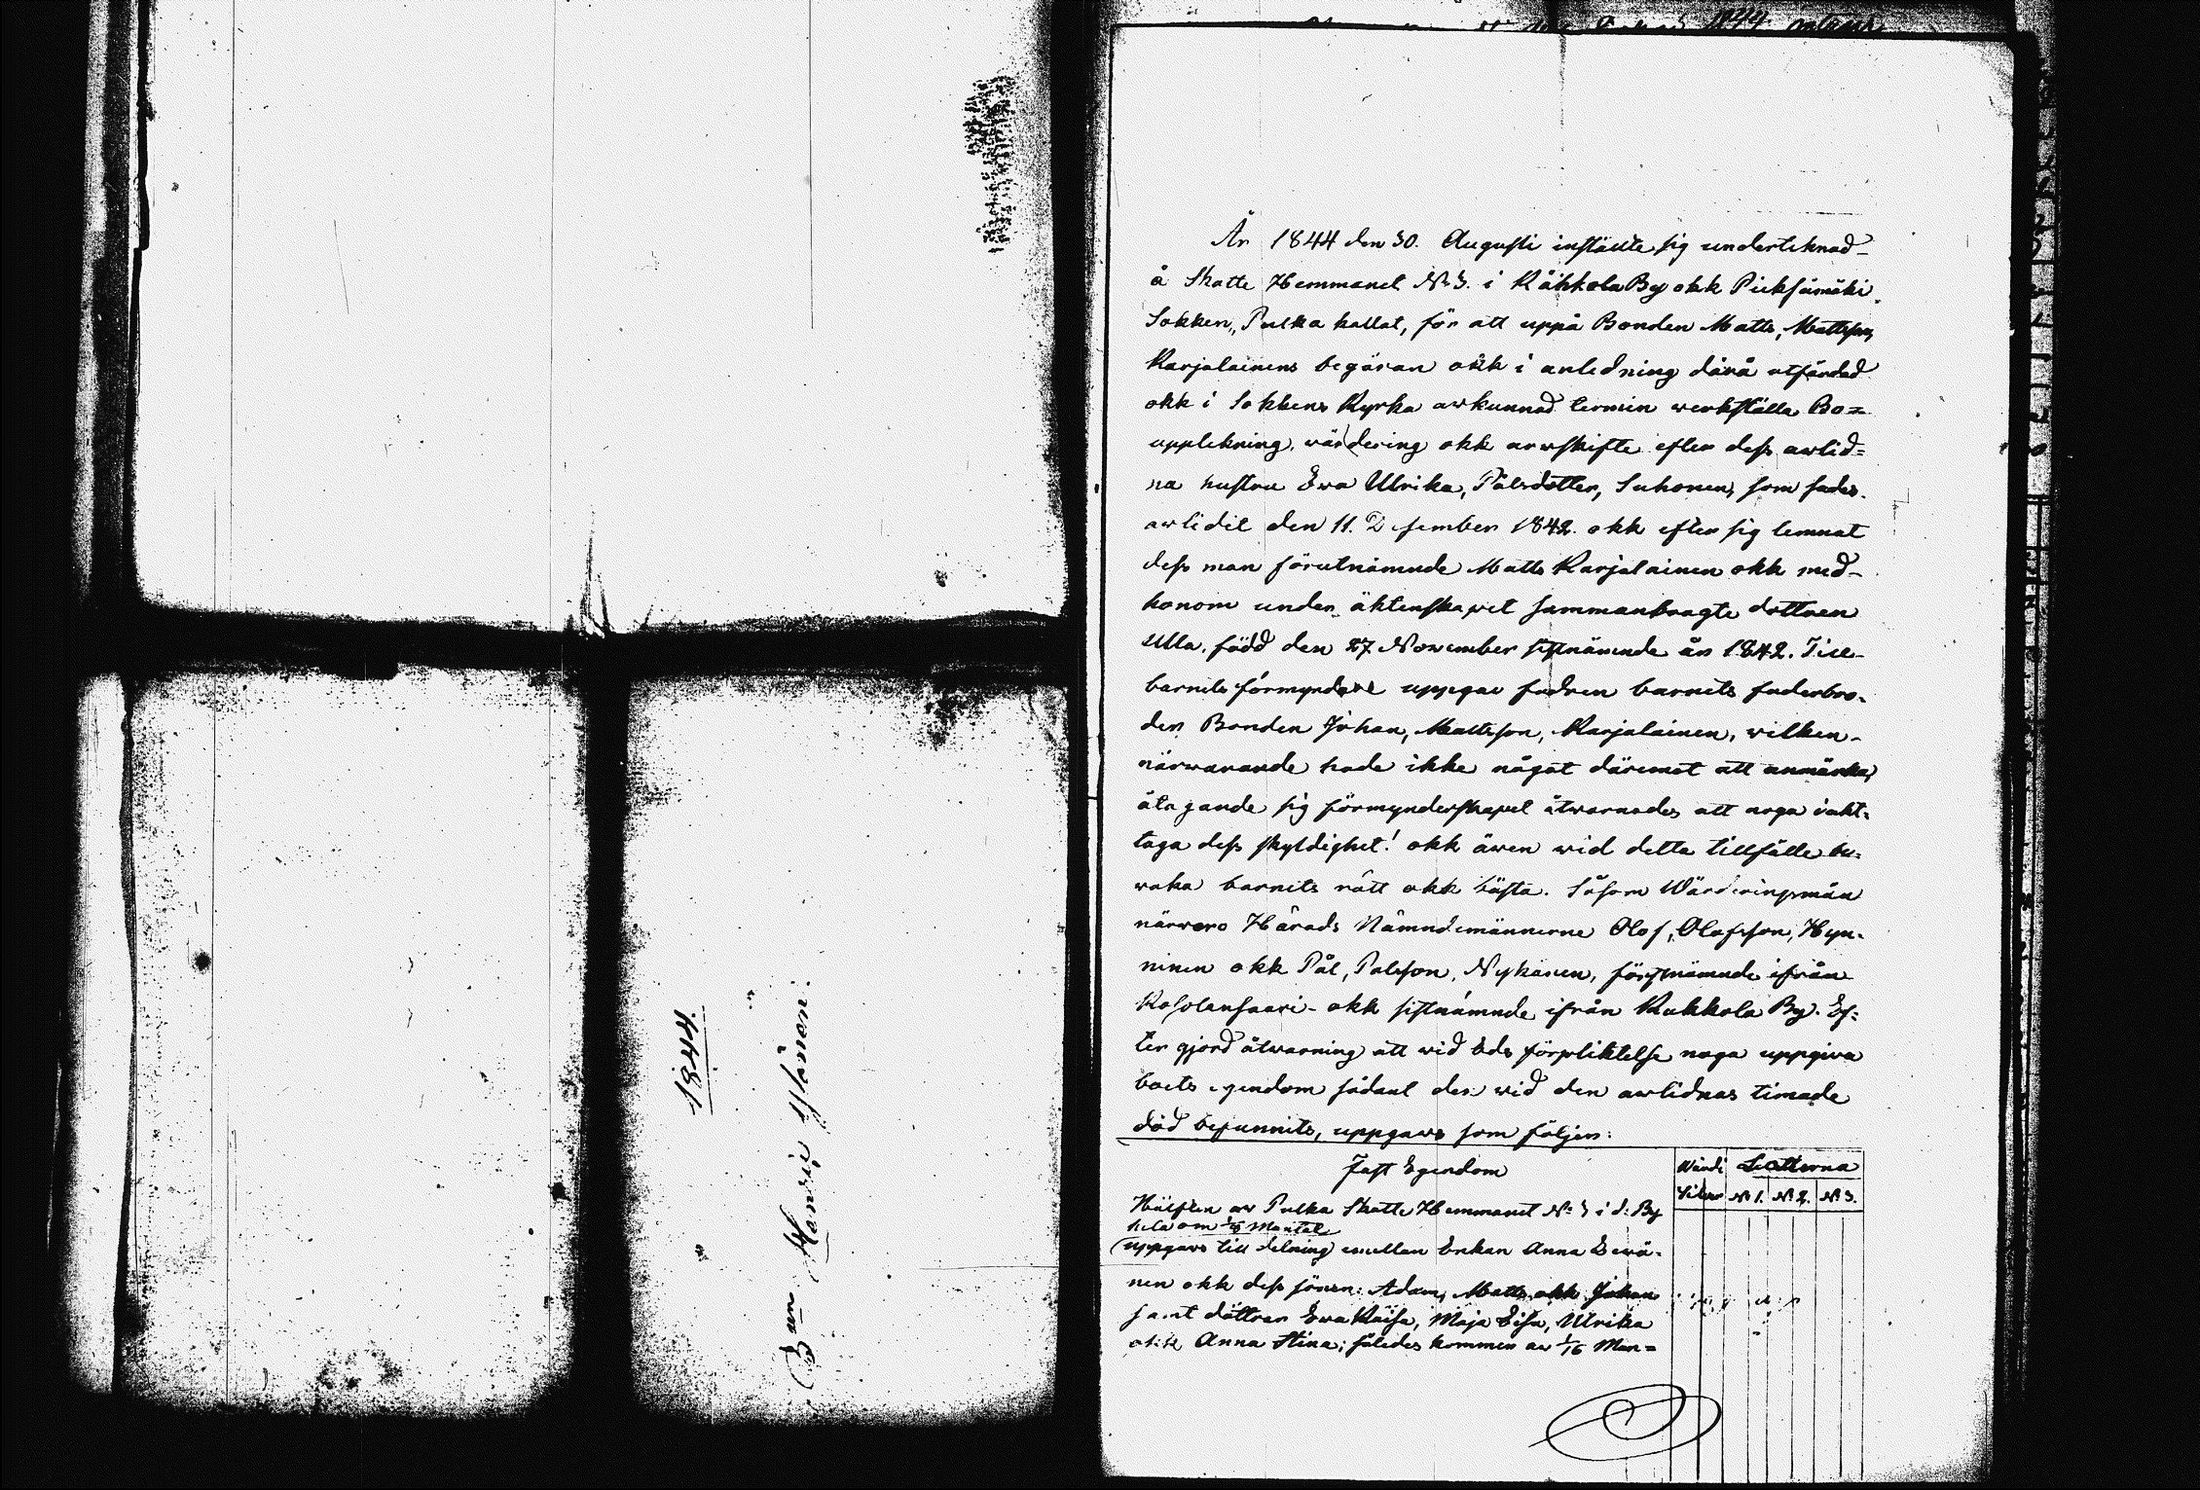 1844.
År 1844 den 30. Augusti inställte sig underteknad
å Skatte Hemmanet No 3. i Räkkola By okk Pieksämäki
Sokken, Pulka kallat, för att uppå Bonden Matts, Mattsson,
Karjalainens begäran okk i anledning därå utfärdad
okk i Sokkens Kyrka avkunnad termin werkställa Bo=
upptekning, värdering okk arwskifte efter dess awlid=
na hustru Ewa Ulrika, Pålsdotter, Suhonen, som sades
awlidit den 11. Desember 1842. okk efter sig lemnat
dess man förutnämnde Matts Karjalainen okk med
honom under äktenskapet sammanbragte dottren
Ulla, född den 27 November sistnämnde år 1842. Till
barnets förmyndare uppgav fadren barnets faderbro=
der Bonden Johan, Mattsson, Karjalainen, vilken
närwarande hade ikke något däremot att anmärka,
åtagande sig förmynderskapet åtwarnades att noga iakt=
taga dess skyldighet! okk äwen wid detta tillfälle be=
waka barnets rätt okk bästa. Såsom Wärderingsmän
närworo Härads Nämndemännerne Olof, Olofsson, Hyn=
ninen okk Pål, Palsson, Nykänen, förstnämnde ifrån
okk sistnämnde ifrån Kukkola By. Ef=
ter gjord åtwarning att wid Eds förpliktelse noga uppgiwa
boets egendom sådant den wid den awlidnas timade
död befunnits, uppgaws som följer:
Fast Egendom
Wärdi Lotterna
Silver No 1. No 2. No 3.
Hälften av Pulka Skatte Hemmanet No 3 i d: By
hela om Mantal
(uppgaws till delning emellan Enkan Anna
nen okk dess söner: Adam, Matts okk Johan
samt döttrar Ewa Kaisa, Maja Lisa, Ulrika
okk Anna Stina; således kommer av 1/16 Man=